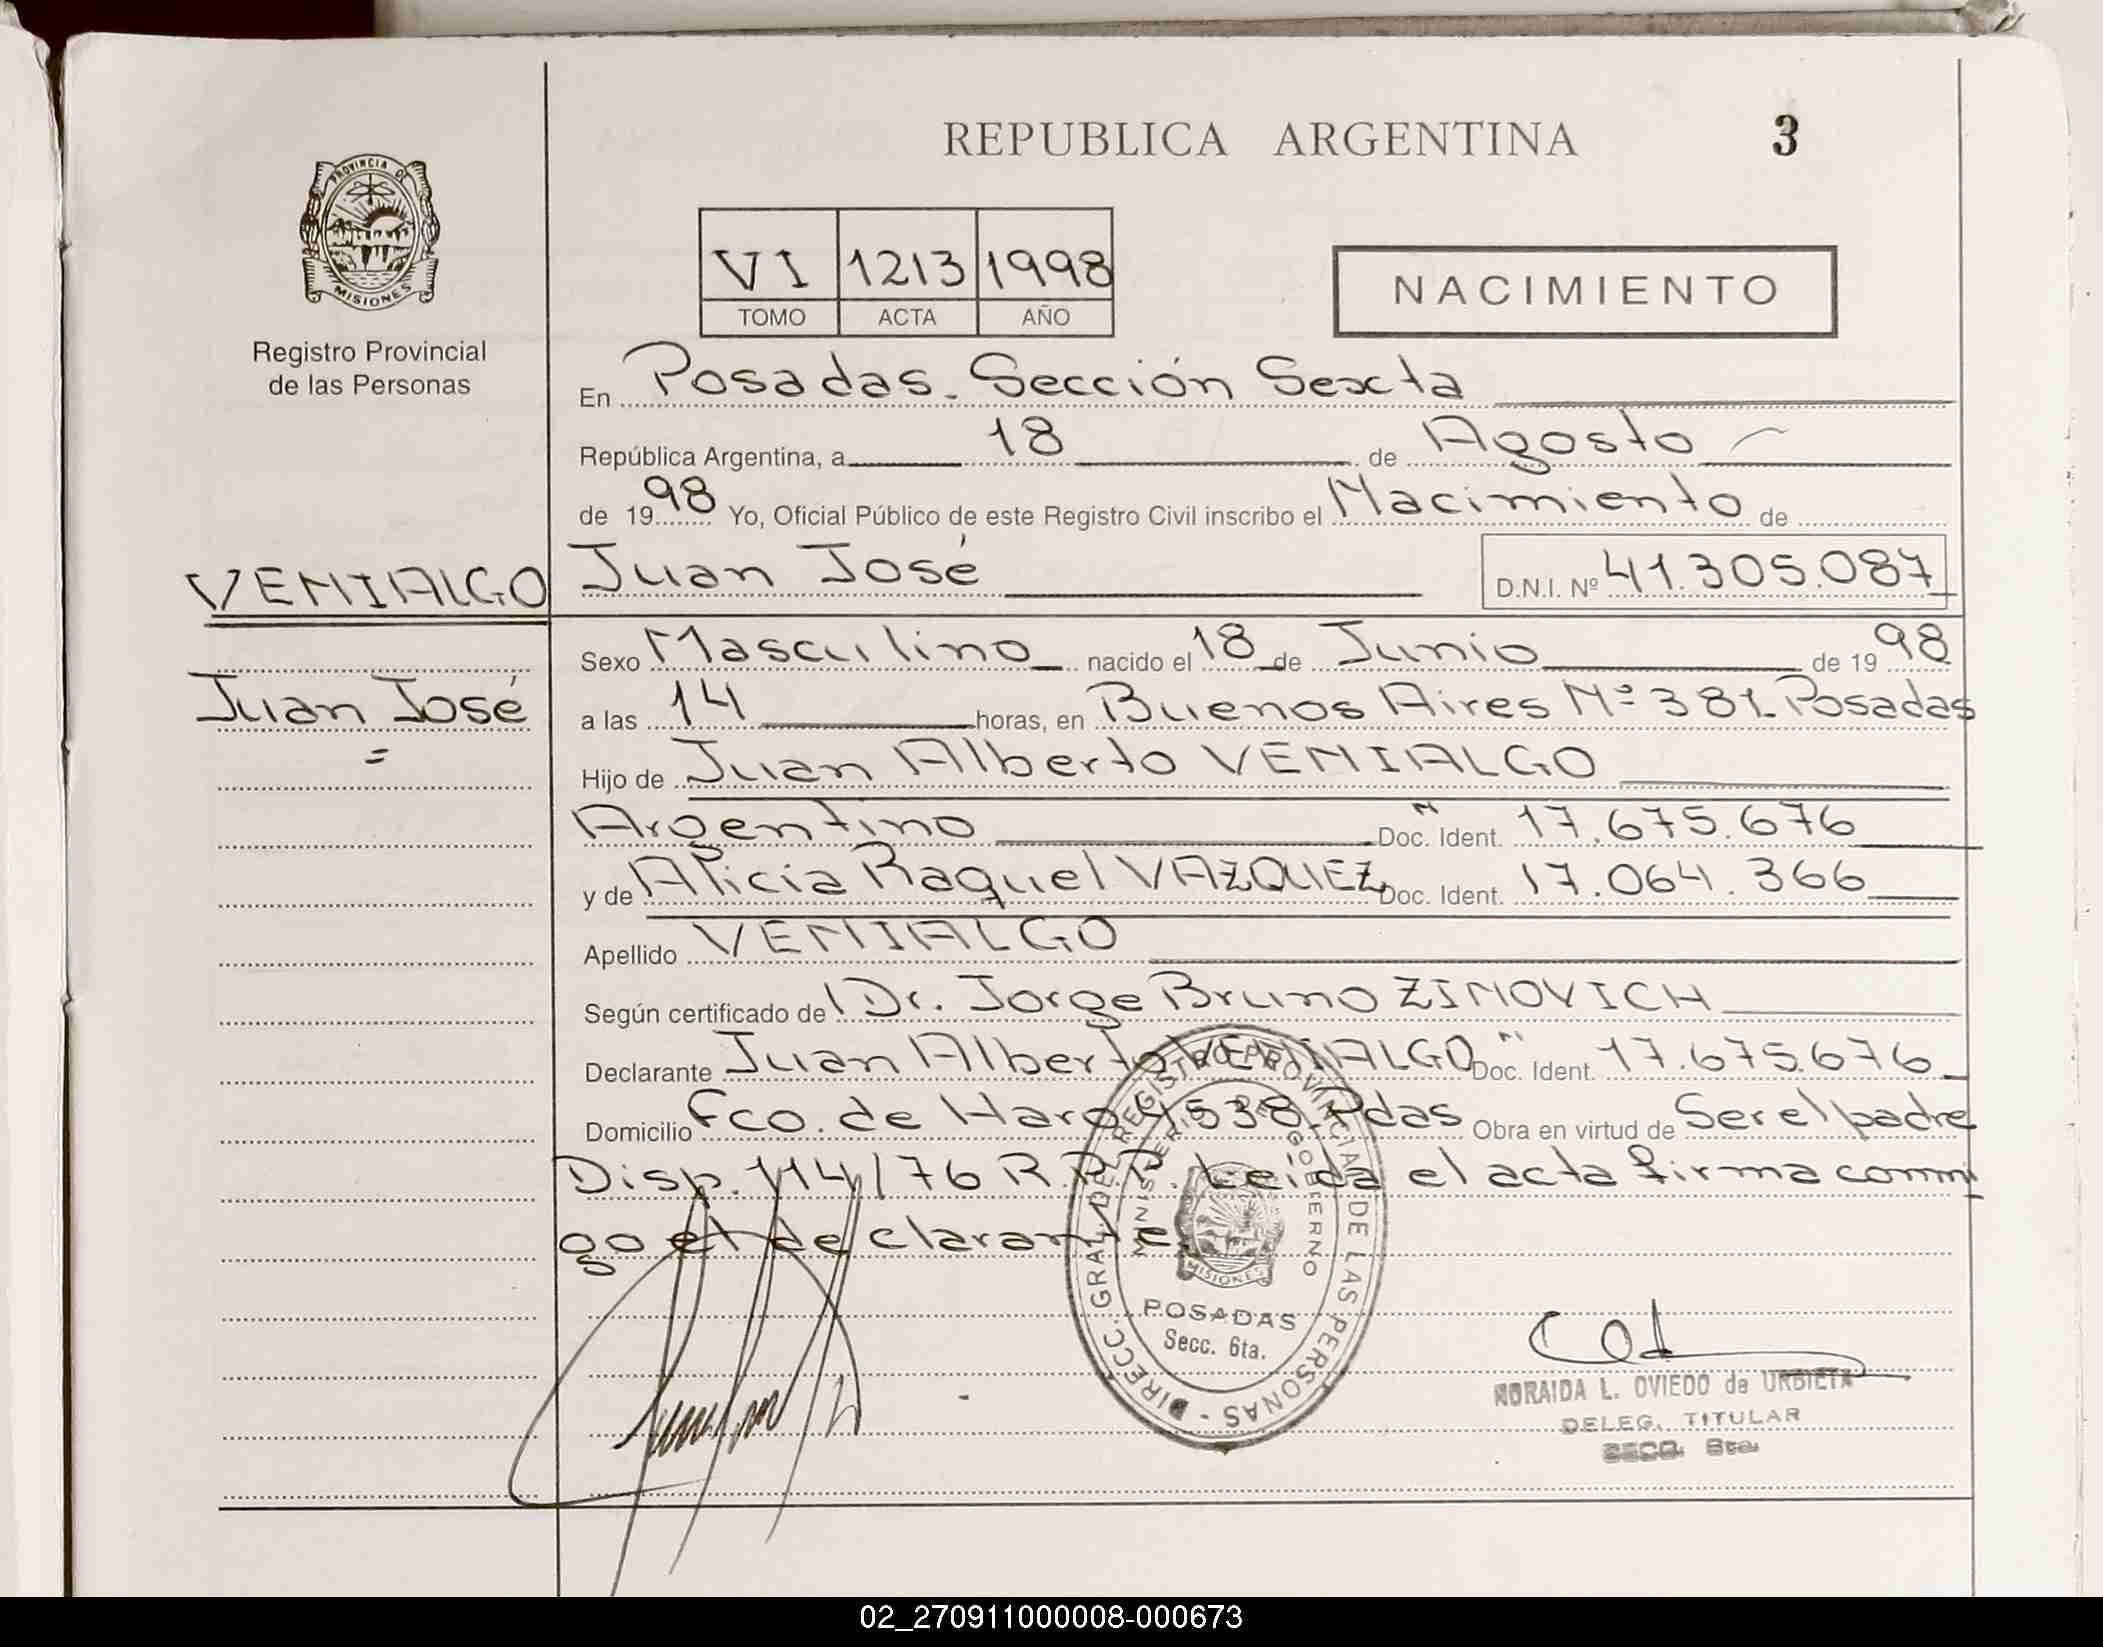 REPUBLICA ARGENTINA 3
PROVINCIA DE MISIONES
Registro Provincial
de las Personas
VI 1213 1998
TOMO ACTA AÑO
NACIMIENTO
En Posadas. Sección Sexta
República Argentina, a 18 de Agosto
de 1998 Yo, Oficial Público de este Registro Civil inscribo el Nacimiento de
VENIALGO Juan José D.N.I. Nº 41.305.087
Juan José
Sexo Masculino nacido el 18 de Junio de 1998
a las 14 horas, en Buenos Aires Nº 381. Posadas
Hijo de Juan Alberto VENIALGO
Argentino Doc. Ident. 17.675.676
y de Alicia Raquel VAZQUEZ Doc. Ident. 17.064.366
Apellido VENIALGO
Según certificado de Dr. Jorge Bruno ZINOVICH
Declarante Juan Alberto VENIALGO Doc. Ident. 17.675.676
Domicilio Fco. de Haro 4538. Pdas Obra en virtud de Ser el padre
Disp. 114/76 R.P.P. Leída el acta firma conmi
go el declarante.
DIRECC. GRAL. DEL REGISTRO PROVINCIAL DE LAS PERSONAS
MINISTERIO DE GOBIERNO
MISIONES
POSADAS
Secc. 6ta.
NORAIDA L. OVIEDO de URBIETA
DELEG. TITULAR
SECC. 6ta.
02_270911000008-000673